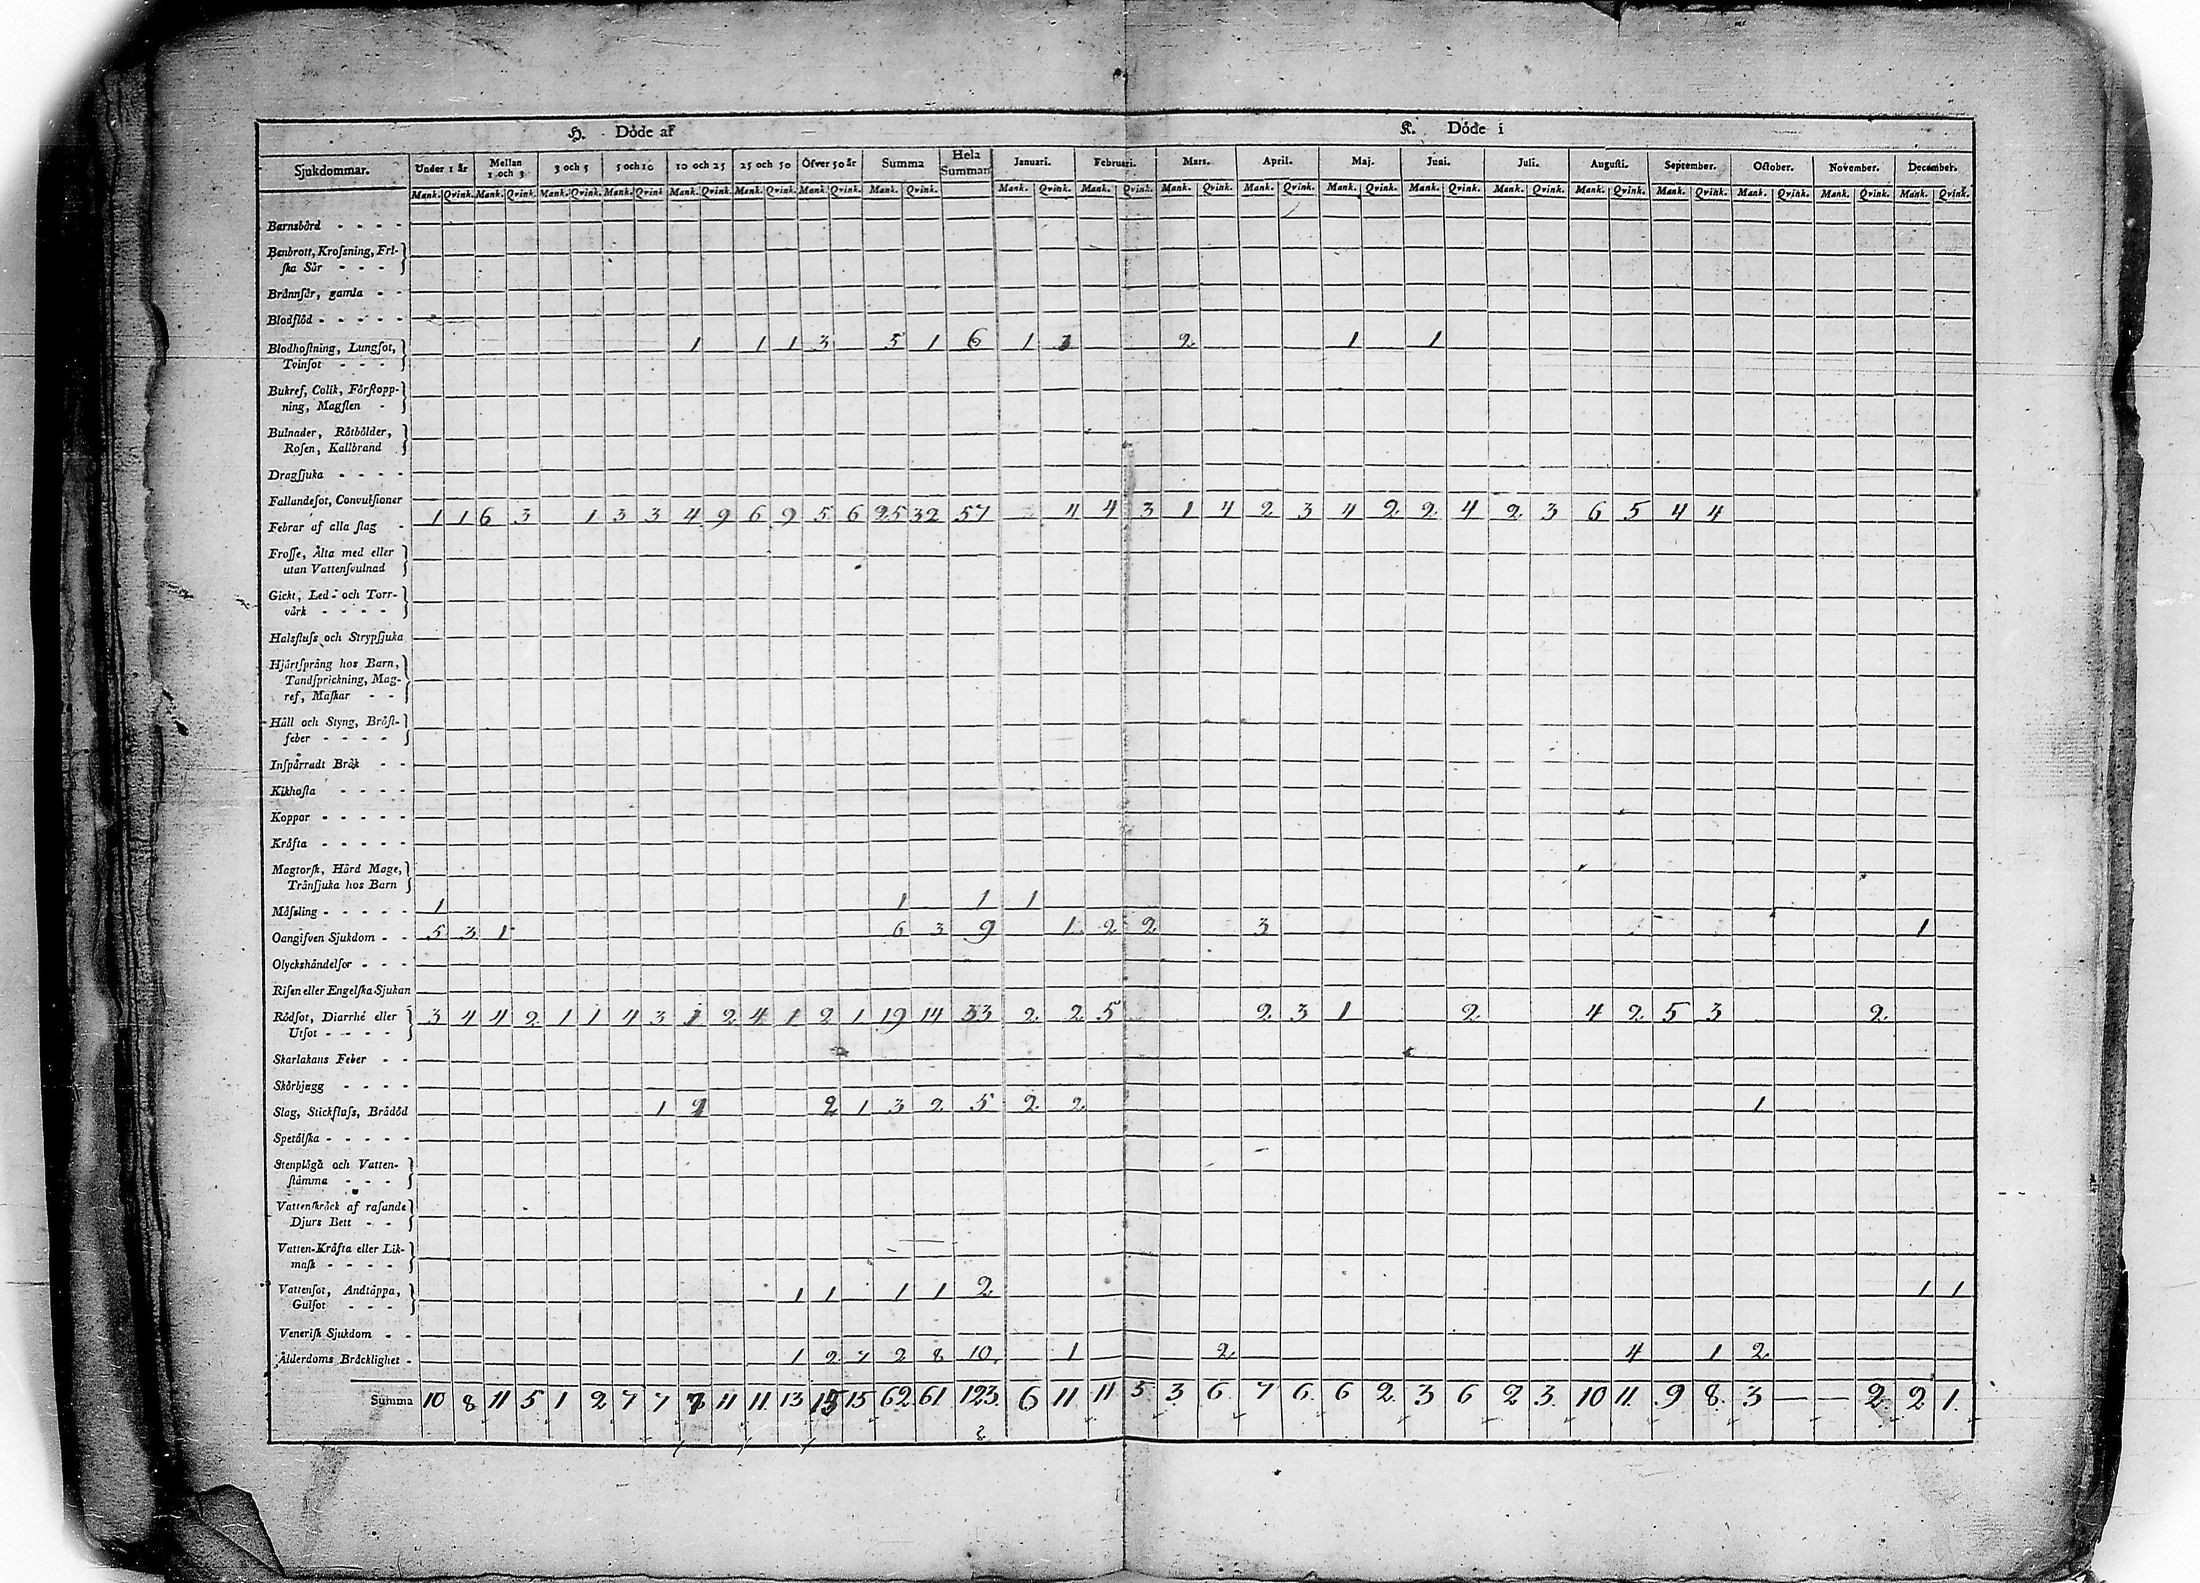 H. Döde af
K. Döde i
Sjukdommar. Under 1 år Mellan 1 och 3 3 och 5 5 och 10 10 och 25 25 och 50 Öfver 50 år Summa Hela Summan Januari. Februari. Mars. April. Maj. Juni. Juli. Augusti. September. October. November. December.
Mank. Qvink. Mank. Qvink. Mank. Qvink. Mank. Qvink Mank. Qvink. Mank. Qvink. Mank. Qvink. Mank. Qvink. Mank. Qvink. Mank. Qvink. Mank. Qvink. Mank. Qvink. Mank. Qvink. Mank. Qvink. Mank. Qvink. Mank. Qvink. Mank. Qvink. Mank. Qvink. Mank. Qvink. Mank. Qvink.
Barnsbörd - - - -
Benbrott, Krosſning, Friſka Sår - - -
Brånnſår, gamla - -
Blodflöd - - - - -
Blodhoſtning, Lungſot, Tvinſot - - - 1 1 1 3 5 1 6 1 2 1 1
Bukref, Colik, Förſtoppning, Magſten -
Bulnader, Rötbölder, Roſen, Kallbrand
Dragſjuka - - - -
Fallandeſot, Convulſioner
Febrar af alla ſlag - 1 1 6 3 1 3 3 4 9 6 9 5 6 25 32 57 4 4 3 1 4 2 3 4 2 2 4 2 3 6 5 4 4
Froſſe, Ålta med eller utan Vattenſvulnad
Gickt, Led- och Torrvårk - - - -
Halsfluſs och Strypſjuka
Hjårtſprång hos Barn, Tandſprickning, Magref, Maſkar - -
Håll och Styng, Bröſtfeber - - - -
Inſpårradt Bråk - -
Kikhoſta - - - -
Koppor - - - - -
Kråfta - - - - -
Magtorſk, Hård Mage, Trånſjuka hos Barn
Måſsling - - - - - 1 1 1 1
Oangifven Sjukdom - - 5 3 1 6 3 9 1 2 2 3 1
Olyckshåndelſor - - -
Riſen eller Engelſka Sjukan
Rödſot, Diarrhé eller Utſot - - - - 3 4 4 2 1 1 4 3 1 2 4 1 2 1 19 14 33 2 2 5 2 3 1 2 4 2 5 3 2
Skarlakans Feber - -
Skörbjugg - - - -
Slag, Stickfluſs, Brådöd 1 2 1 3 2 5 2 2 1
Spetålſka - - - - -
Stenplåga och Vattenſtåmma - - -
Vattenſkråck af raſande Djurs Bett - -
Vatten-Kråfta eller Likmaſk - - - -
Vattenſot, Andtåppa, Gulſot - - - 1 1 1 1 2 1 1
Veneriſk Sjukdom - -
Ålderdoms Bråcklighet - 1 2 7 2 8 10 1 2 4 1 2
Summa 10 8 11 5 1 2 7 7 7 11 11 13 15 15 62 61 123 6 11 11 5 3 6 7 6 6 2 3 6 2 3 10 11 9 8 3 — — 2 2 1